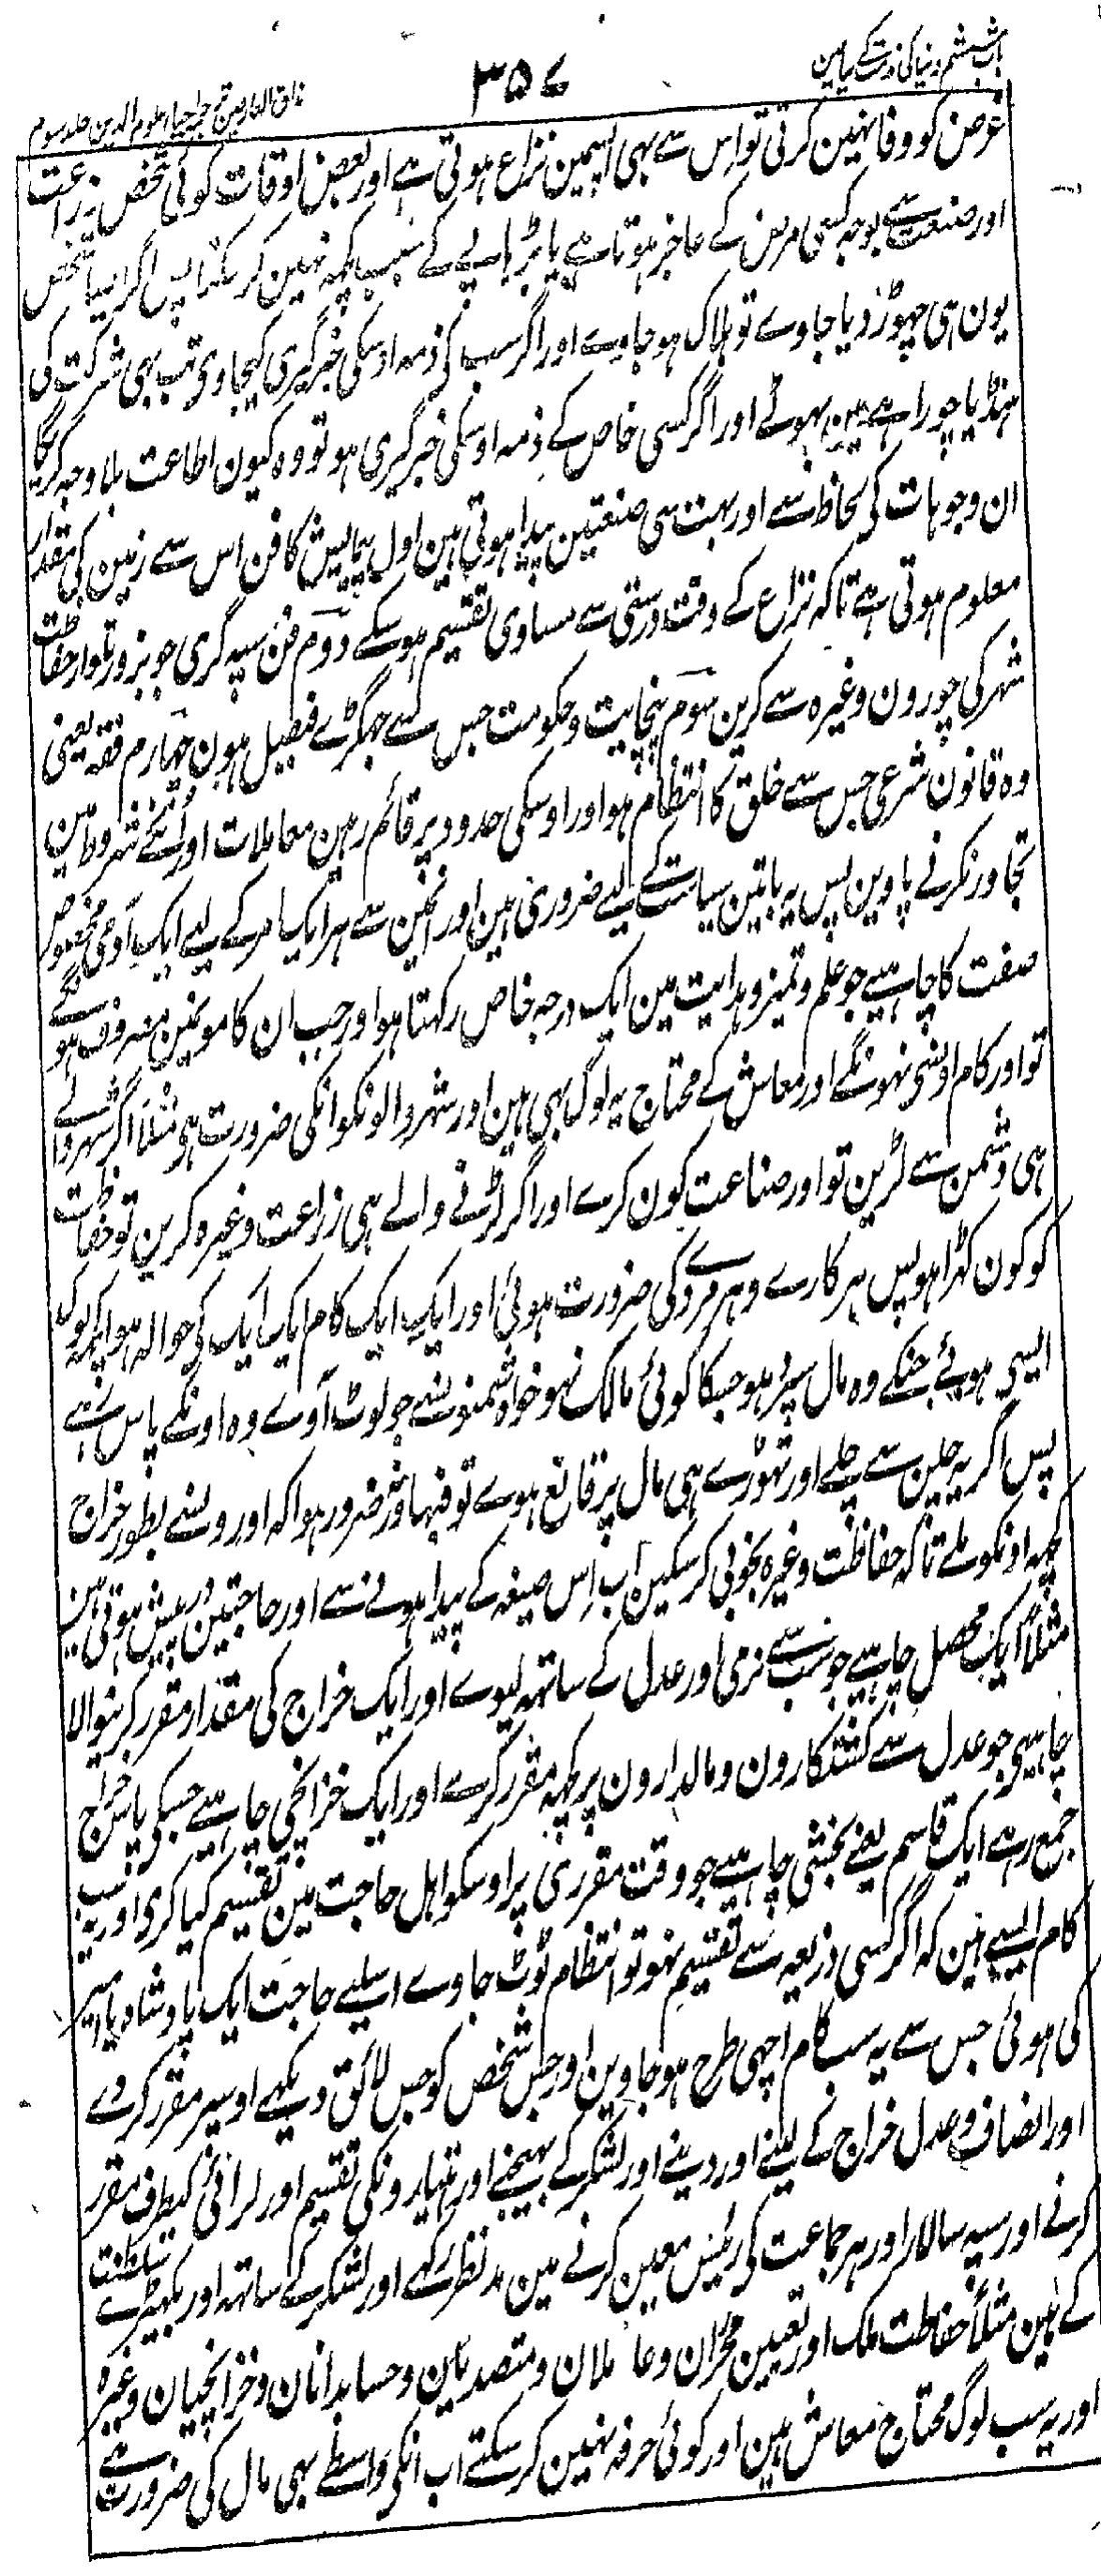 باب ششم دنیا کی مذمت کے بیان مین
۳۵۷
مذاق العارفین ترجمہ احیاء علوم الدین جلد سوم
غرض کو وفا نہین کرتی تو اس سے بہی اسمین نزاع ہوتی ہے اور بعض اوقات کوئی شخص زراعت
اور صنعت سے بوجہ کسی مرض کے عاجز ہوتا ہے یا بڑہاپے کے سبب کچہہ نہین کر سکتا پس اگر ایسا شخص
یون ہی چہوڑ دیا جاوے تو ہلاک ہو جاوے اور اگر سب کی ذمہ اوسکی خبر گیری کیجاوی تب بہی شرکت کی
ہنڈیا چوراہے مین پہوٹے اور اگر کسی خاص کے ذمہ اوسکی خبر گیری ہو تو وہ کیون اطاعت بلا وجہ کریگا
ان وجوہات کی لحاظ سے اور بہت سی صنعتین پیدا ہوتی ہین اول پیمایش کا فن اس سے زمین کی مقدار
معلوم ہوتی ہے تاکہ نزاع کے وقت درستی سے مساوی تقسیم ہو سکے دوم فن سپہ گری جو بزور تلوار حفاظت
شہر کی چورون وغیرہ سے کرین سوم پنچایت و حکومت جس سے جہگڑے فیصل ہون چہارم فقہ یعنی
وہ قانون شرعی جس سے خلق کا انتظام ہو اور اوسکی حدود پر قائم رہین معاملات اور انکے شروط مین
تجاوز نکرنے پاوین پس یہ باتین سیاست کے لیے ضروری ہین اور انمین سے ہر ایک امر کے لیے ایک آدمی مخصوص
صفت کا چاہیے جو علم و تمیز و ہدایت مین ایک درجہ خاص رکہتا ہو اور جب ان کامو نمین مصروف ہونگے
تو اور کام اونسی نہونگے اور معاش کے محتاج یہ لوگ بہی ہین اور شہر والونکو انکی ضرورت ہی مثلاً اگر شہر والے
ہی دشمن سے لڑین تو اور صناعت کون کرے اور اگر لڑنے والے ہی زراعت وغیرہ کرین تو حفاظت
کو کون کہڑا ہو پس ہر کارے و ہر مردے کی ضرورت ہوئی اور ایک ایک کام ایک ایک کی حوالہ ہوا چند لوگ
ایسی ہوئے جنکے وہ مال سپرد ہو جسکا کوئی مالک نہو خواہ دشمنو نسے جو لوٹ آوے وہ اونکے پاس رہے
پس اگر یہ چلن سے چلے اور تہوڑے ہی مال پر قانع ہوے تو فبہا ورنہ ضرور ہوا کہ اور ونسے بطور خراج
کچہہ اونکو ملے تاکہ حفاظت وغیرہ بخوبی کر سکین اب اس صیغہ کے پیدا ہونے سے اور حاجتین درپیش ہوتی ہین
مثلاً ایک محصل چاہیے جو سب سے نرمی اور عدل کے ساتھہ لیوے اور ایک خراج کی مقدار مقرر کرنیوالا
چاہیی جو عدل سے کشتکارون و مالدارون پر کچہہ مقرر کرے اور ایک خزانچی چاہیے جسکی پاس خراج
جمع رہے ایک قاسم یعنے بخشی چاہیے جو وقت مقرری پر اوسکو اہل حاجت مین تقسیم کیا کری اور یہ سب
کام ایسے ہین کہ اگر کسی ذریعہ سے تقسیم نہو تو انتظام ٹوٹ جاوے اسلیے حاجت ایک پادشاہ یا امیر
کی ہوئی جس سے یہ سب کام اچہی طرح ہو جاوین اور جس شخص کو جس لائق دیکہے اوسپر مقرر کر دے
اور انصاف و عدل خراج کے لینے اور دینے اور لشکر کے بہیجنے اور ہتیارونکی تقسیم اور لڑائی کیطرف مقرر
کرنے اور سپہ سالار اور ہر جماعت کی رئیس معین کرنے مین مد نظر رکہے اور لشکر کے ساتھہ اور بکہیڑے سلطنت
کے ہین مثلاً حفاظت ملک اور تعیین محرران و عاملان و متصدیان و حسابدانان و خزانچیان وغیرہ
اور یہ سب لوگ محتاج معاش ہین اور کوئی حرفہ نہین کر سکتے اب انکی واسطے بہی مال کی ضرورت ہے